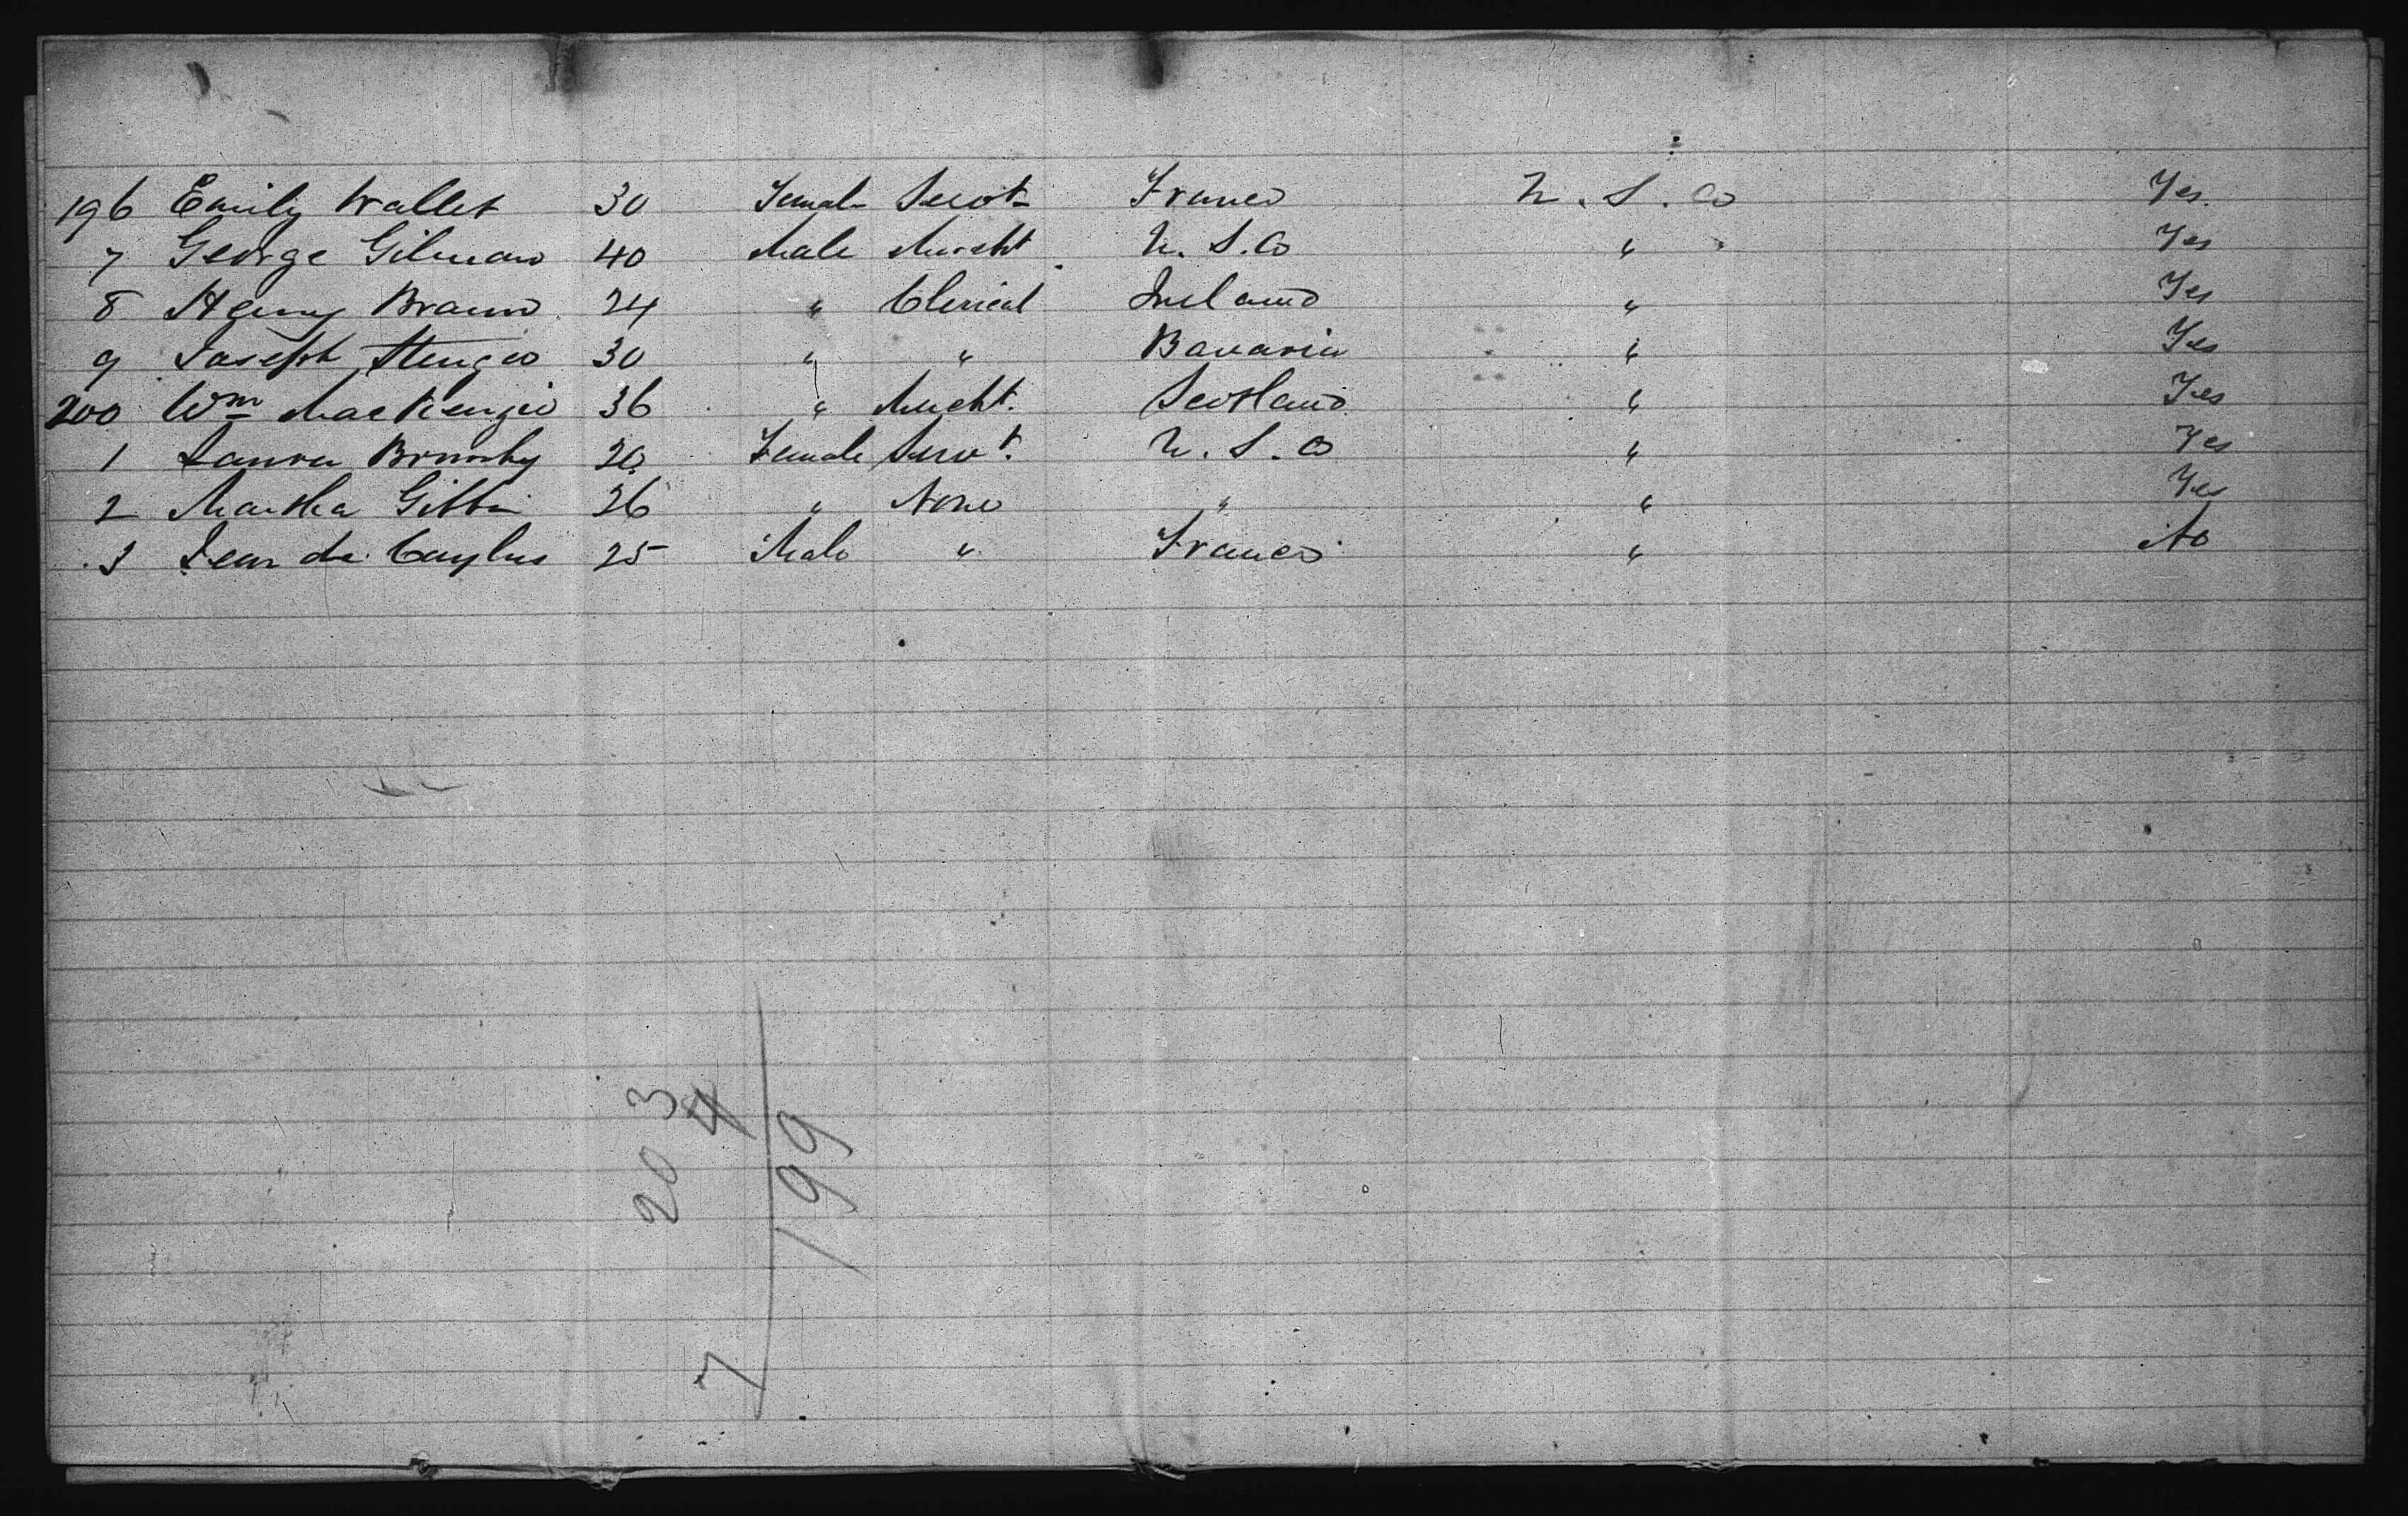 196 Emily Wallet 30 Female Servt France U. S. Co Yes.
7 George Gilman 40 Male Mercht U. S. Co " Yes
8 Henry Braun 24 " Clerical Ireland " Yes
9 Joseph 30 " " Bavaria " Yes
200 Wm MacKenzie 36 " Mercht. Scotland " Yes
1 Laura 20 Female Servt. U. S. Co " Yes
2 Martha Gibbin 26 " None " " Yes
3 Jean de Caylus 25 Male " France " No
203
4
199
7